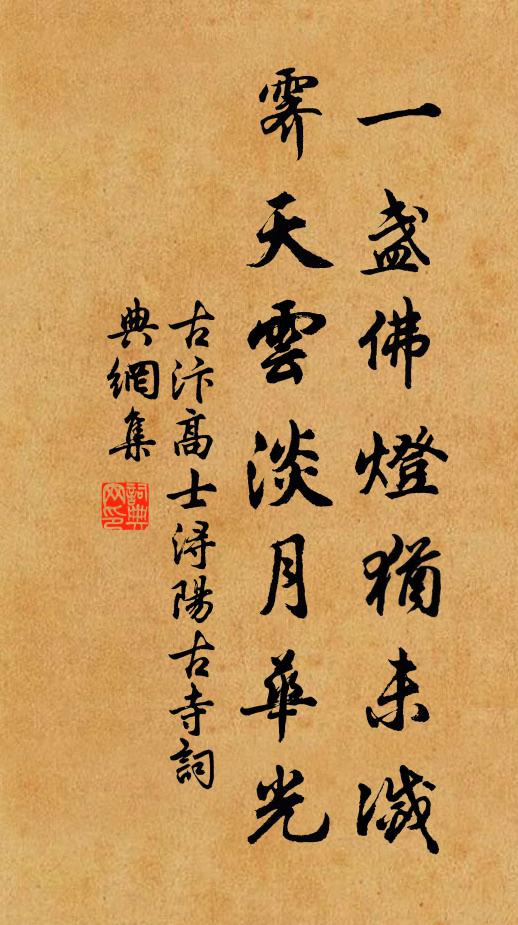 一盏佛燈猶未滅
霽天雲淡月華光
古汴高士浔陽古寺詞
典網集
詞典